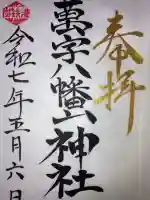 奉拝
萬字八幡神社
令和七年五月六日